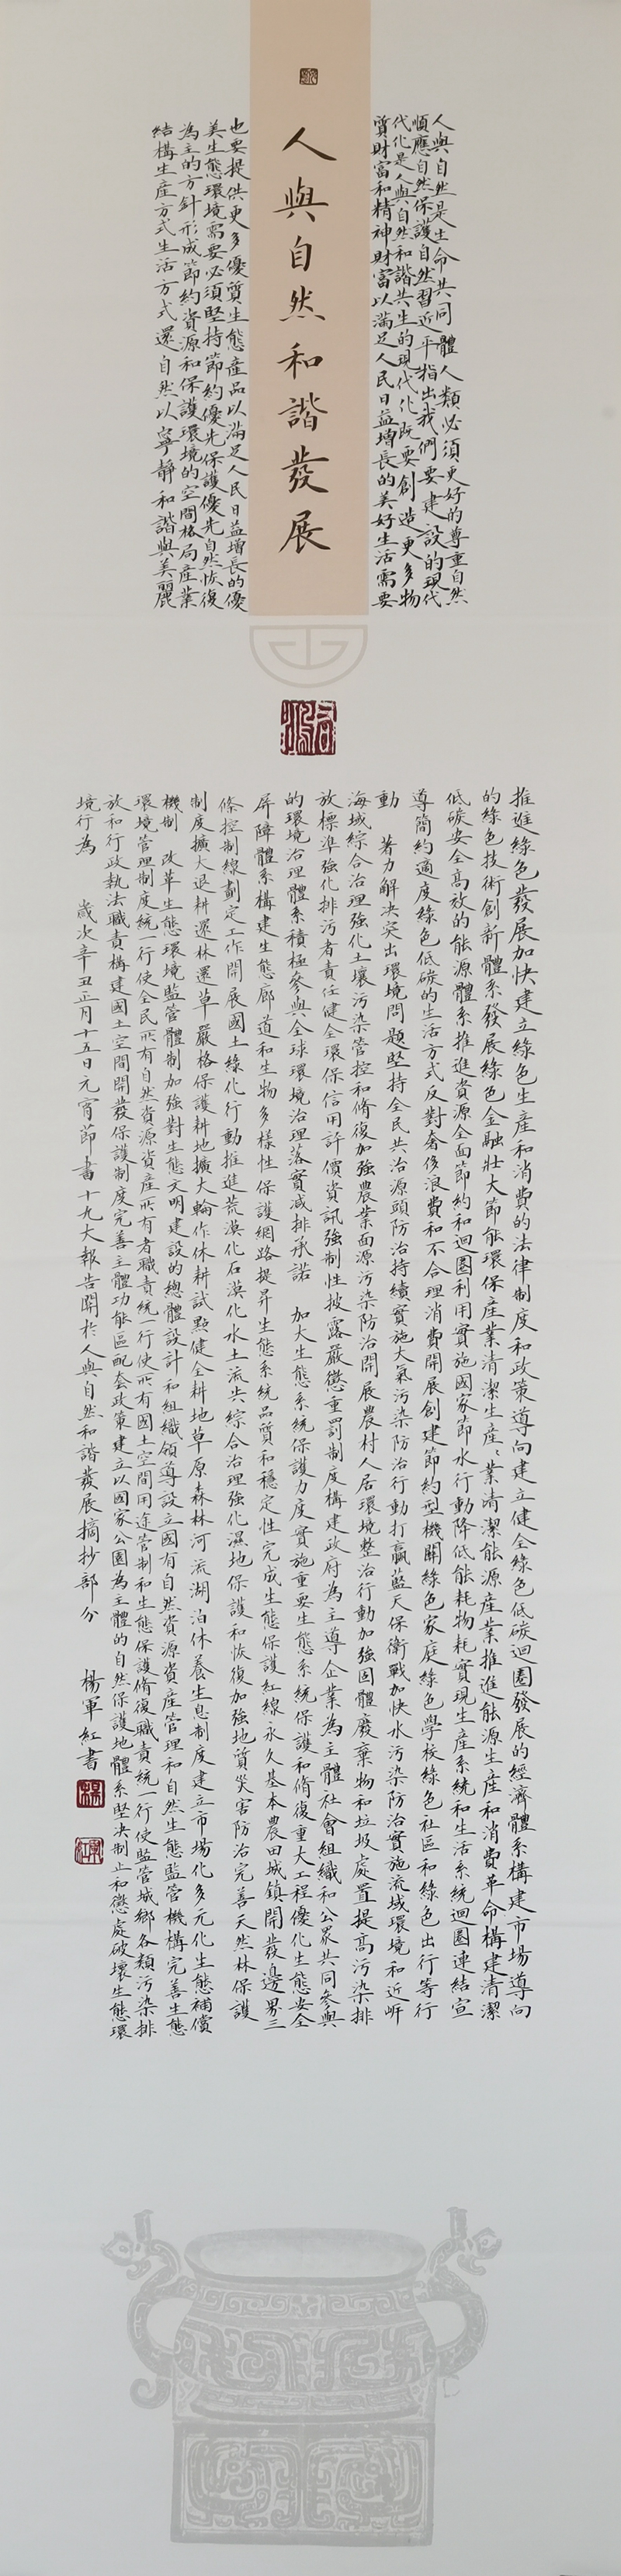 人與自然和諧發展
人與自然是生命共同體人類必須更好的尊重自然
順應自然保護自然習近平指出我們要建設的現代
代化是人與自然和諧共生的現代化既要創造更多物
質財富和精神財富以滿足人民日益增長的美好生活需要
也要提供更多優質生態產品以滿足人民日益增長的優
美生態環境需要必須堅持節約優先保護優先自然恢復
為主的方針形成節約資源和保護環境的空間格局產業
結構生產方式生活方式還自然以寧靜和諧與美麗
推進綠色發展加快建立綠色生產和消費的法律制度和政策導向建立健全綠色低碳迴圈發展的經濟體系構建市場導向
的綠色技術創新體系發展綠色金融壯大節能環保產業清潔生產業清潔能源產業推進能源生產和消費革命構建清潔
低碳安全高效的能源體系推進資源全面節約和迴圈利用實施國家節水行動降低能耗物耗實現生產系統和生活系統迴圈連結宣
導簡約適度綠色低碳的生活方式反對奢侈浪費和不合理消費開展創建節約型機關綠色家庭綠色學校綠色社區和綠色出行等行
動 著力解決突出環境問題堅持全民共治源頭防治持續實施大氣污染防治行動打贏藍天保衛戰加快水污染防治實施流域環境和近岸
海域綜合治理強化土壤污染管控和修復加強農業面源污染防治開展農村人居環境整治行動加強固體廢棄物和垃圾處置提高污染排
放標準強化排污者責任健全環保信用評價資訊強制性披露嚴懲重罰制度構建政府為主導企業為主體社會組織和公眾共同參與
的環境治理體系積極參與全球環境治理落實減排承諾 加大生態系統保護力度實施重要生態系統保護和修復重大工程優化生態安全
屏障體系構建生態廊道和生物多樣性保護網路提昇生態系統品質和穩定性完成生態保護紅線永久基本農田城鎮開發邊界三
條控制線劃定工作開展國土綠化行動推進荒漠化石漠化水土流失綜合治理強化濕地保護和恢復加強地質災害防治完善天然林保護
制度擴大退耕還林還草嚴格保護耕地擴大輪作休耕試點健全耕地草原森林河流湖泊休養生息制度建立市場化多元化生態補償
機制 改革生態環境監管體制加強對生態文明建設的總體設計和組織領導設立國有自然資源資產管理和自然生態監管機構完善生態
環境管理制度統一行使全民所有自然資源資產所有者職責統一行使所有國土空間用途管制和生態保護修復職責統一行使監管城鄉各類污染排
放和行政執法職責構建國土空間開發保護制度完善主體功能區配套政策建立以國家公園為主體的自然保護地體系堅決制止和懲處破壞生態環
境行為 歲次辛丑正月十五日元宵節書十九大報告關於人與自然和諧發展摘抄部分 楊軍紅書